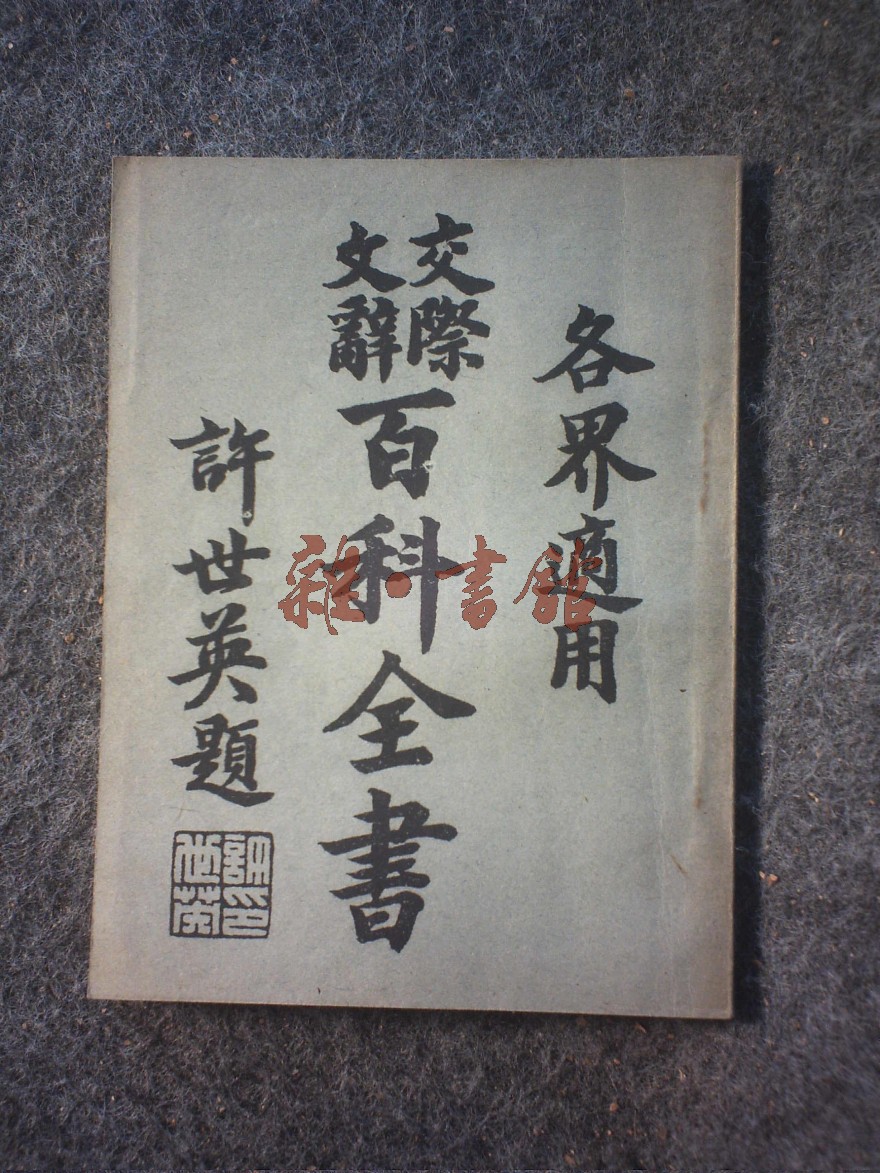 各界適用
交際
文辭
百科全書
許世英題
許印
世英
雜·書館